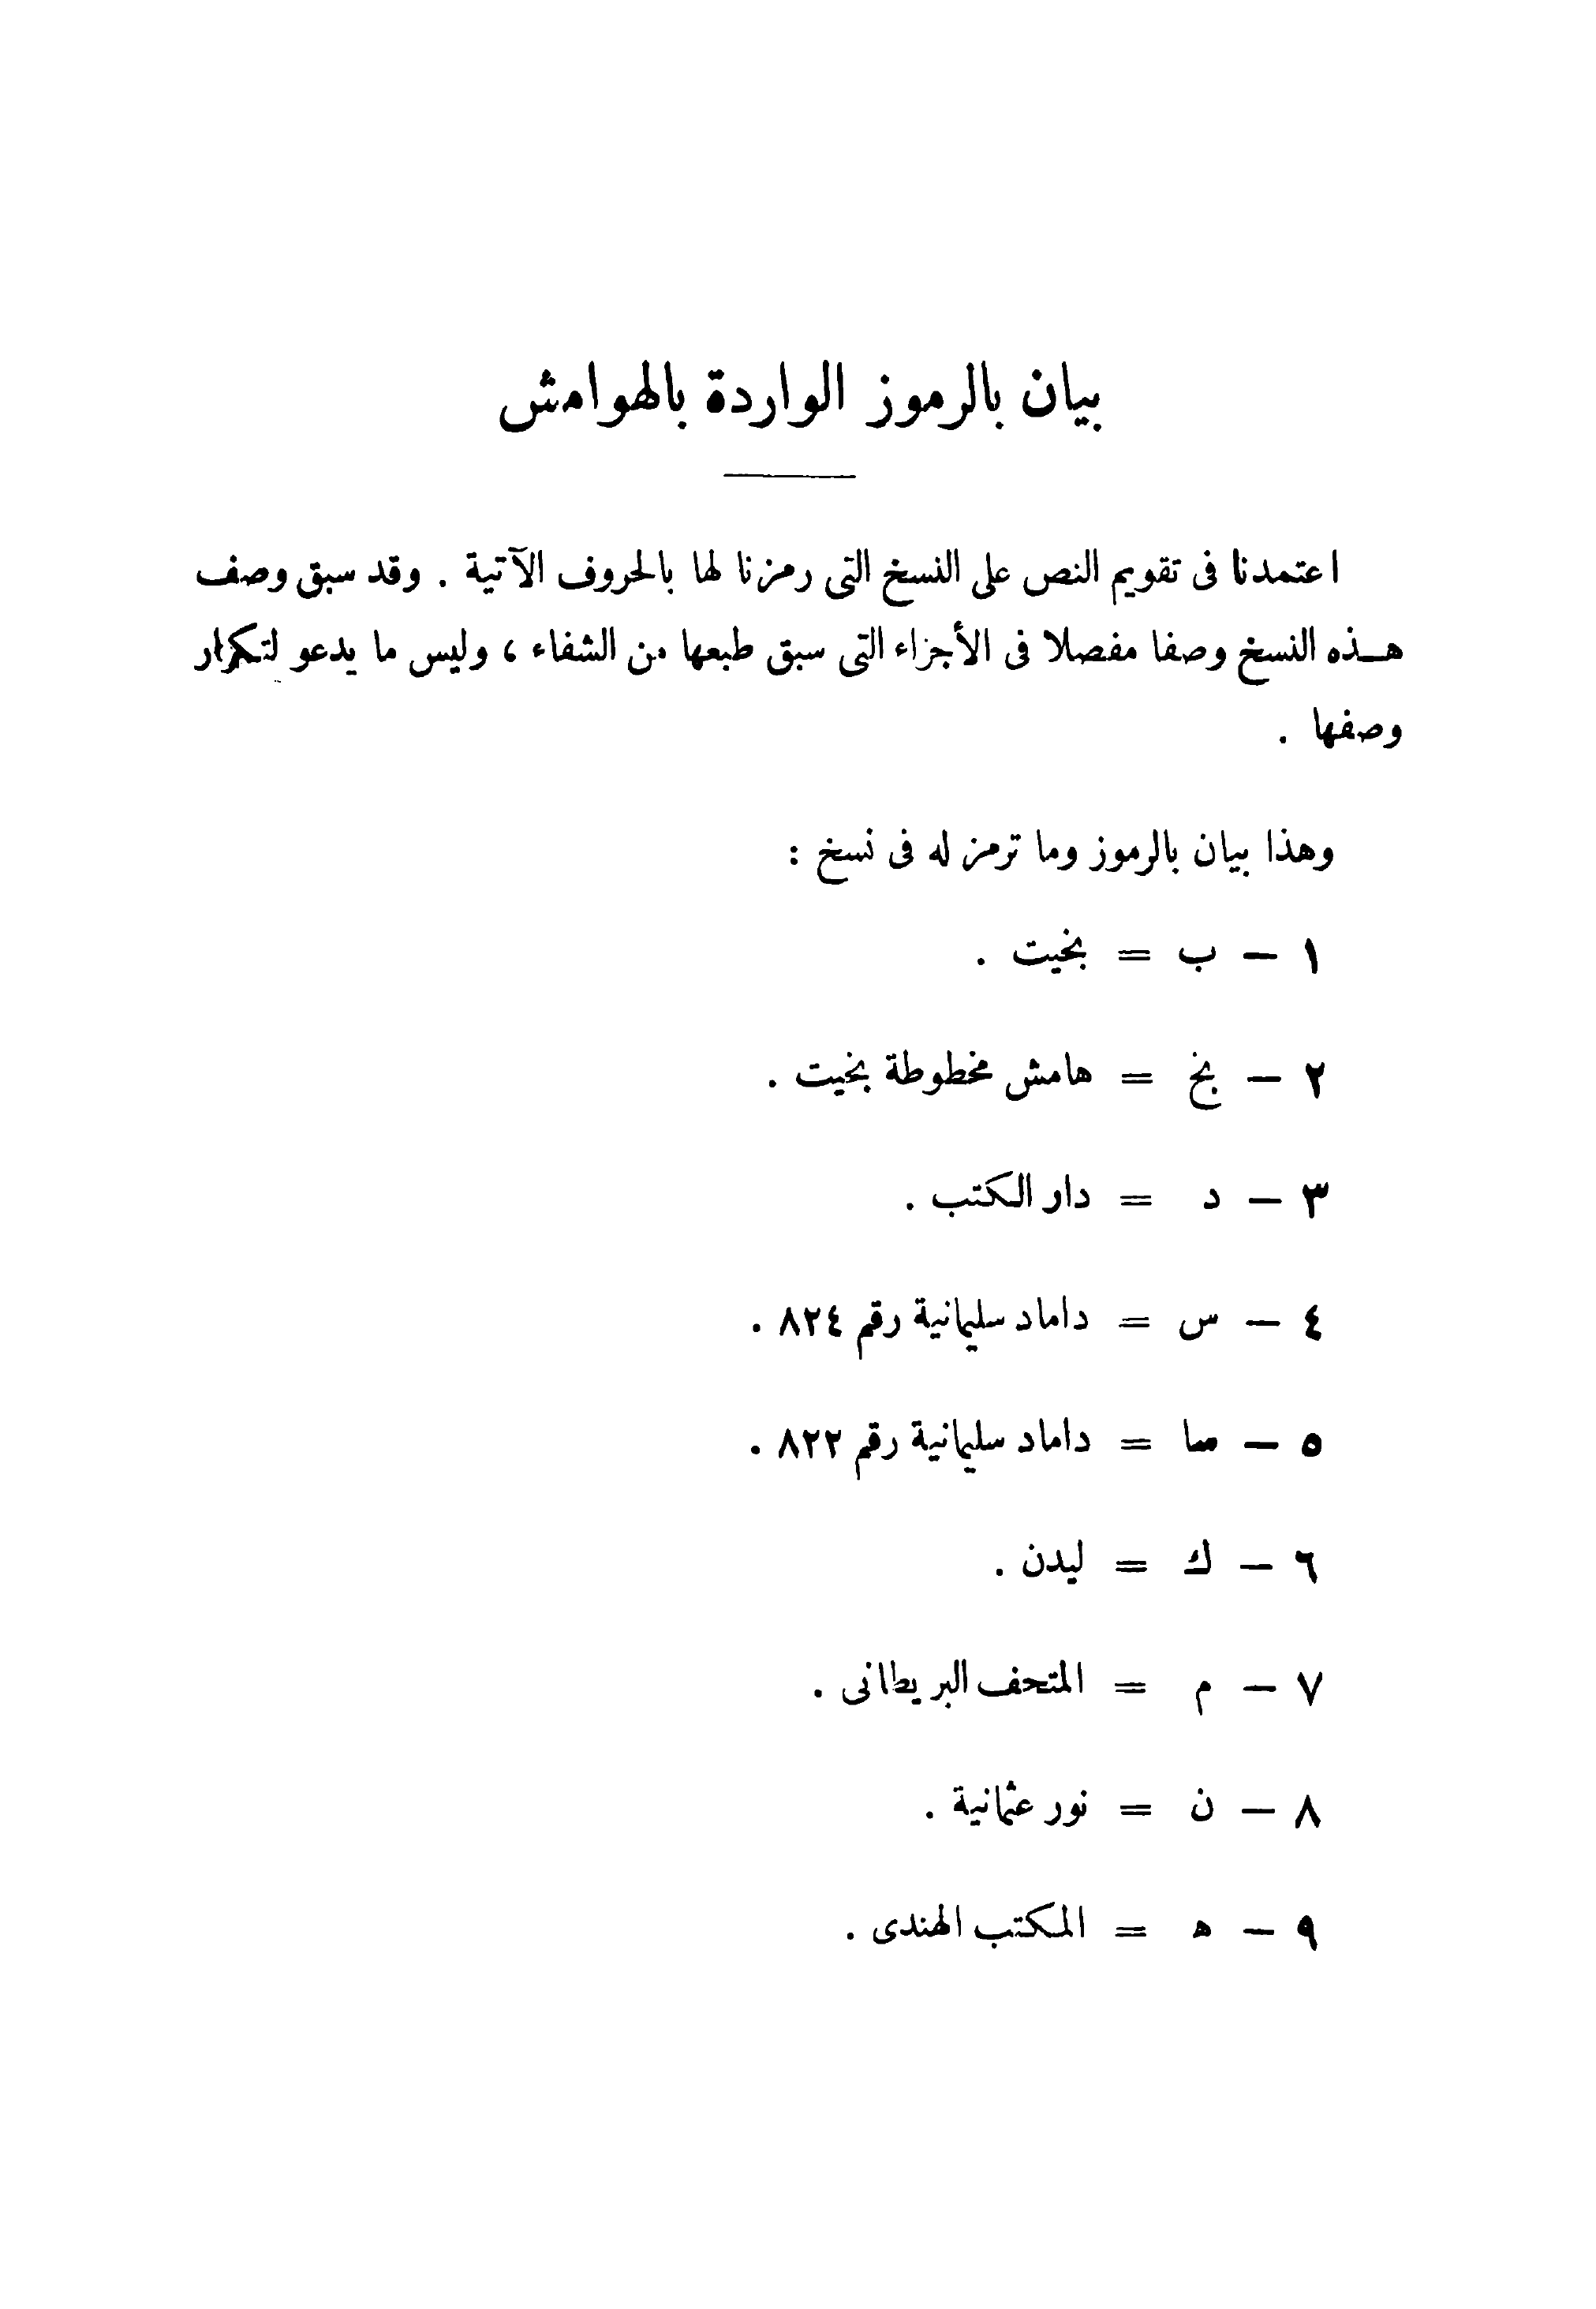 بيان بالرموز الواردة بالهوامش
اعتمدنا فى تقويم النص على النسخ التى رمزنا لها بالحروف الآتية . وقد سبق وصف
هـذه النسخ وصفا مفصلا فى الأجزاء التى سبق طبعها من الشفاء ، وليس ما يدعو لتكرار
وصفها .
وهذا بيان بالرموز وما ترمز له فى نسخ :
١ – ب = بخيت .
٢ – بخ = هامش مخطوطة بخيت .
٣ – د = دار الكتب .
٤ – س = داماد سليمانية رقم ٨٢٤ .
٥ – سا = داماد سليمانية رقم ٨٢٢ .
٦ – ك = ليدن .
٧ – م = المتحف البريطانى .
٨ – ن = نور عثمانية .
٩ – ه = المكتب الهندى .